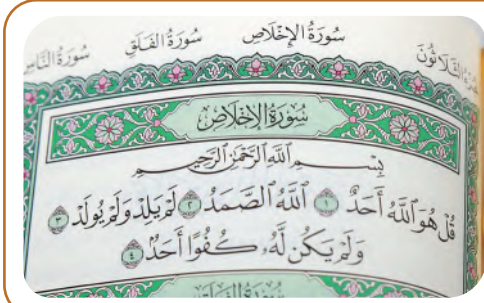 سُورَةُ الإِخْلَاصِ سُورَةُ الفَلَقِ سُورَةُ النَّاسِ
الثَّلَاثُونَ
سُورَةُ الإِخْلَاصِ
بِسْمِ اللَّهِ الرَّحْمَٰنِ الرَّحِيمِ
قُلْ هُوَ اللَّهُ أَحَدٌ ١ اللَّهُ الصَّمَدُ ٢ لَمْ يَلِدْ وَلَمْ يُولَدْ ٣
وَلَمْ يَكُن لَّهُۥ كُفُوًا أَحَدٌۢ ٤
سُورَةُ الفَلَقِ